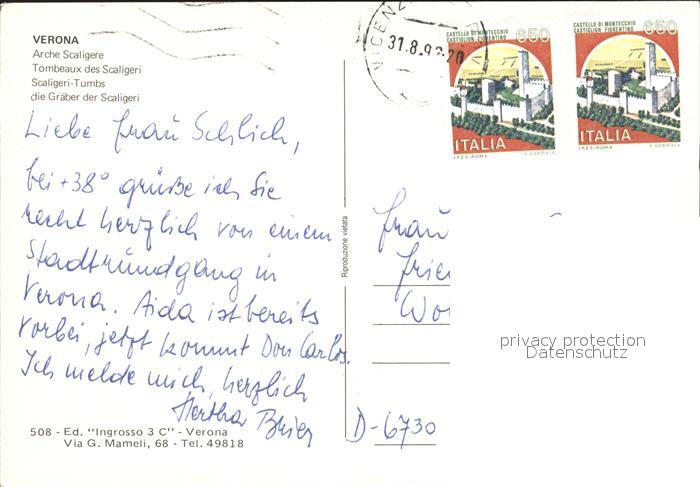 VERONA
Arche Scaligere
Tombeaux des Scaligeri
Scaligeri-Tumbs
die Gräber der Scaligeri
Liebe Frau Schlich,
bei +38° grüße ich Sie
recht herzlich von einem
Stadtrundgang in
Verona. Aida ist bereits
vorbei, jetzt kommt Don Carlos.
Ich melde mich, herzlich
Hertha
508 - Ed. "Ingrosso 3 C" - Verona
Via G. Mameli, 68 - Tel. 49818
Riproduzione vietata
31.8.92-20
CASTELLO DI MONTECCHIO
CASTIGLION FIORENTINO
650
ITALIA
I.P.Z.S.-ROMA
CASTELLO DI MONTECCHIO
CASTIGLION FIORENTINO
650
ITALIA
I.P.Z.S.-ROMA
Frau
Frie
Wor
D-6730
privacy protection
Datenschutz